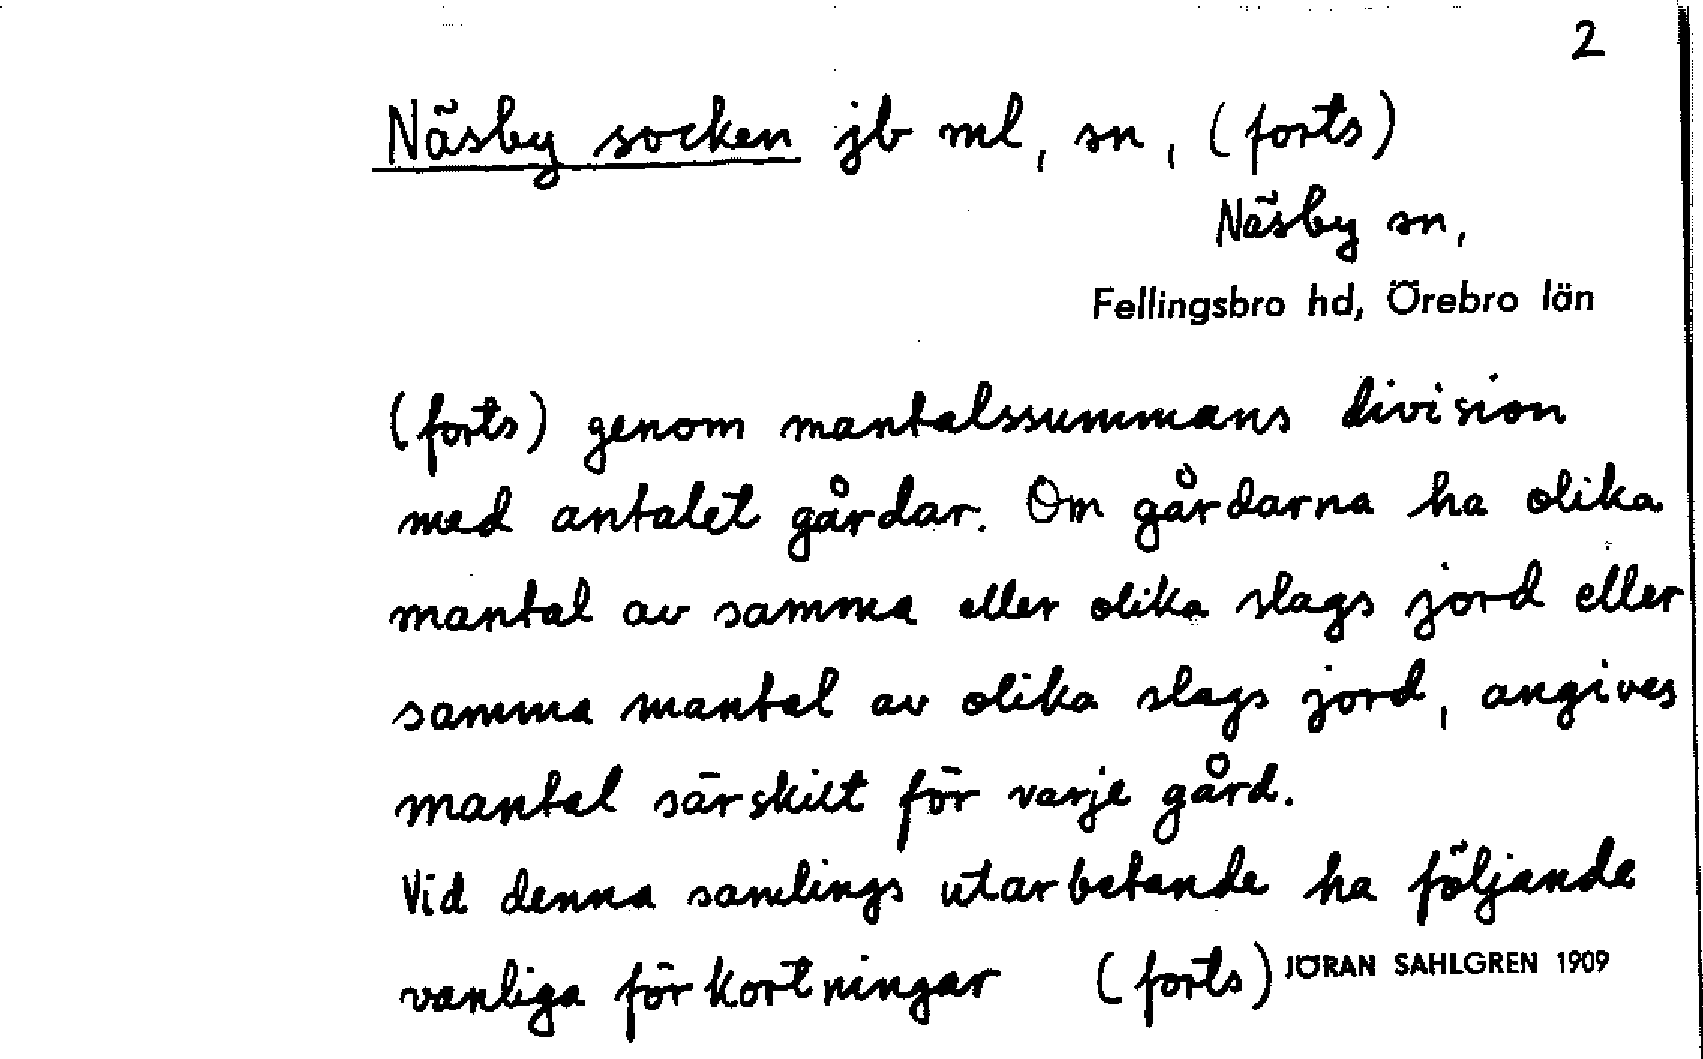 2
Näsby socken jb ml, sn, (forts)
Näsby sn,
Fellingsbro hd, Örebro län
(forts) genom mantalssummans division
med antalet gårdar. Om gårdarna ha olika
mantal av samma eller olika slags jord eller
samma mantal av olika slags jord, angives
mantal särskilt för varje gård.
Vid denna samlings utarbetande ha följande
vanliga förkortningar (forts) JÖRAN SAHLGREN 1909